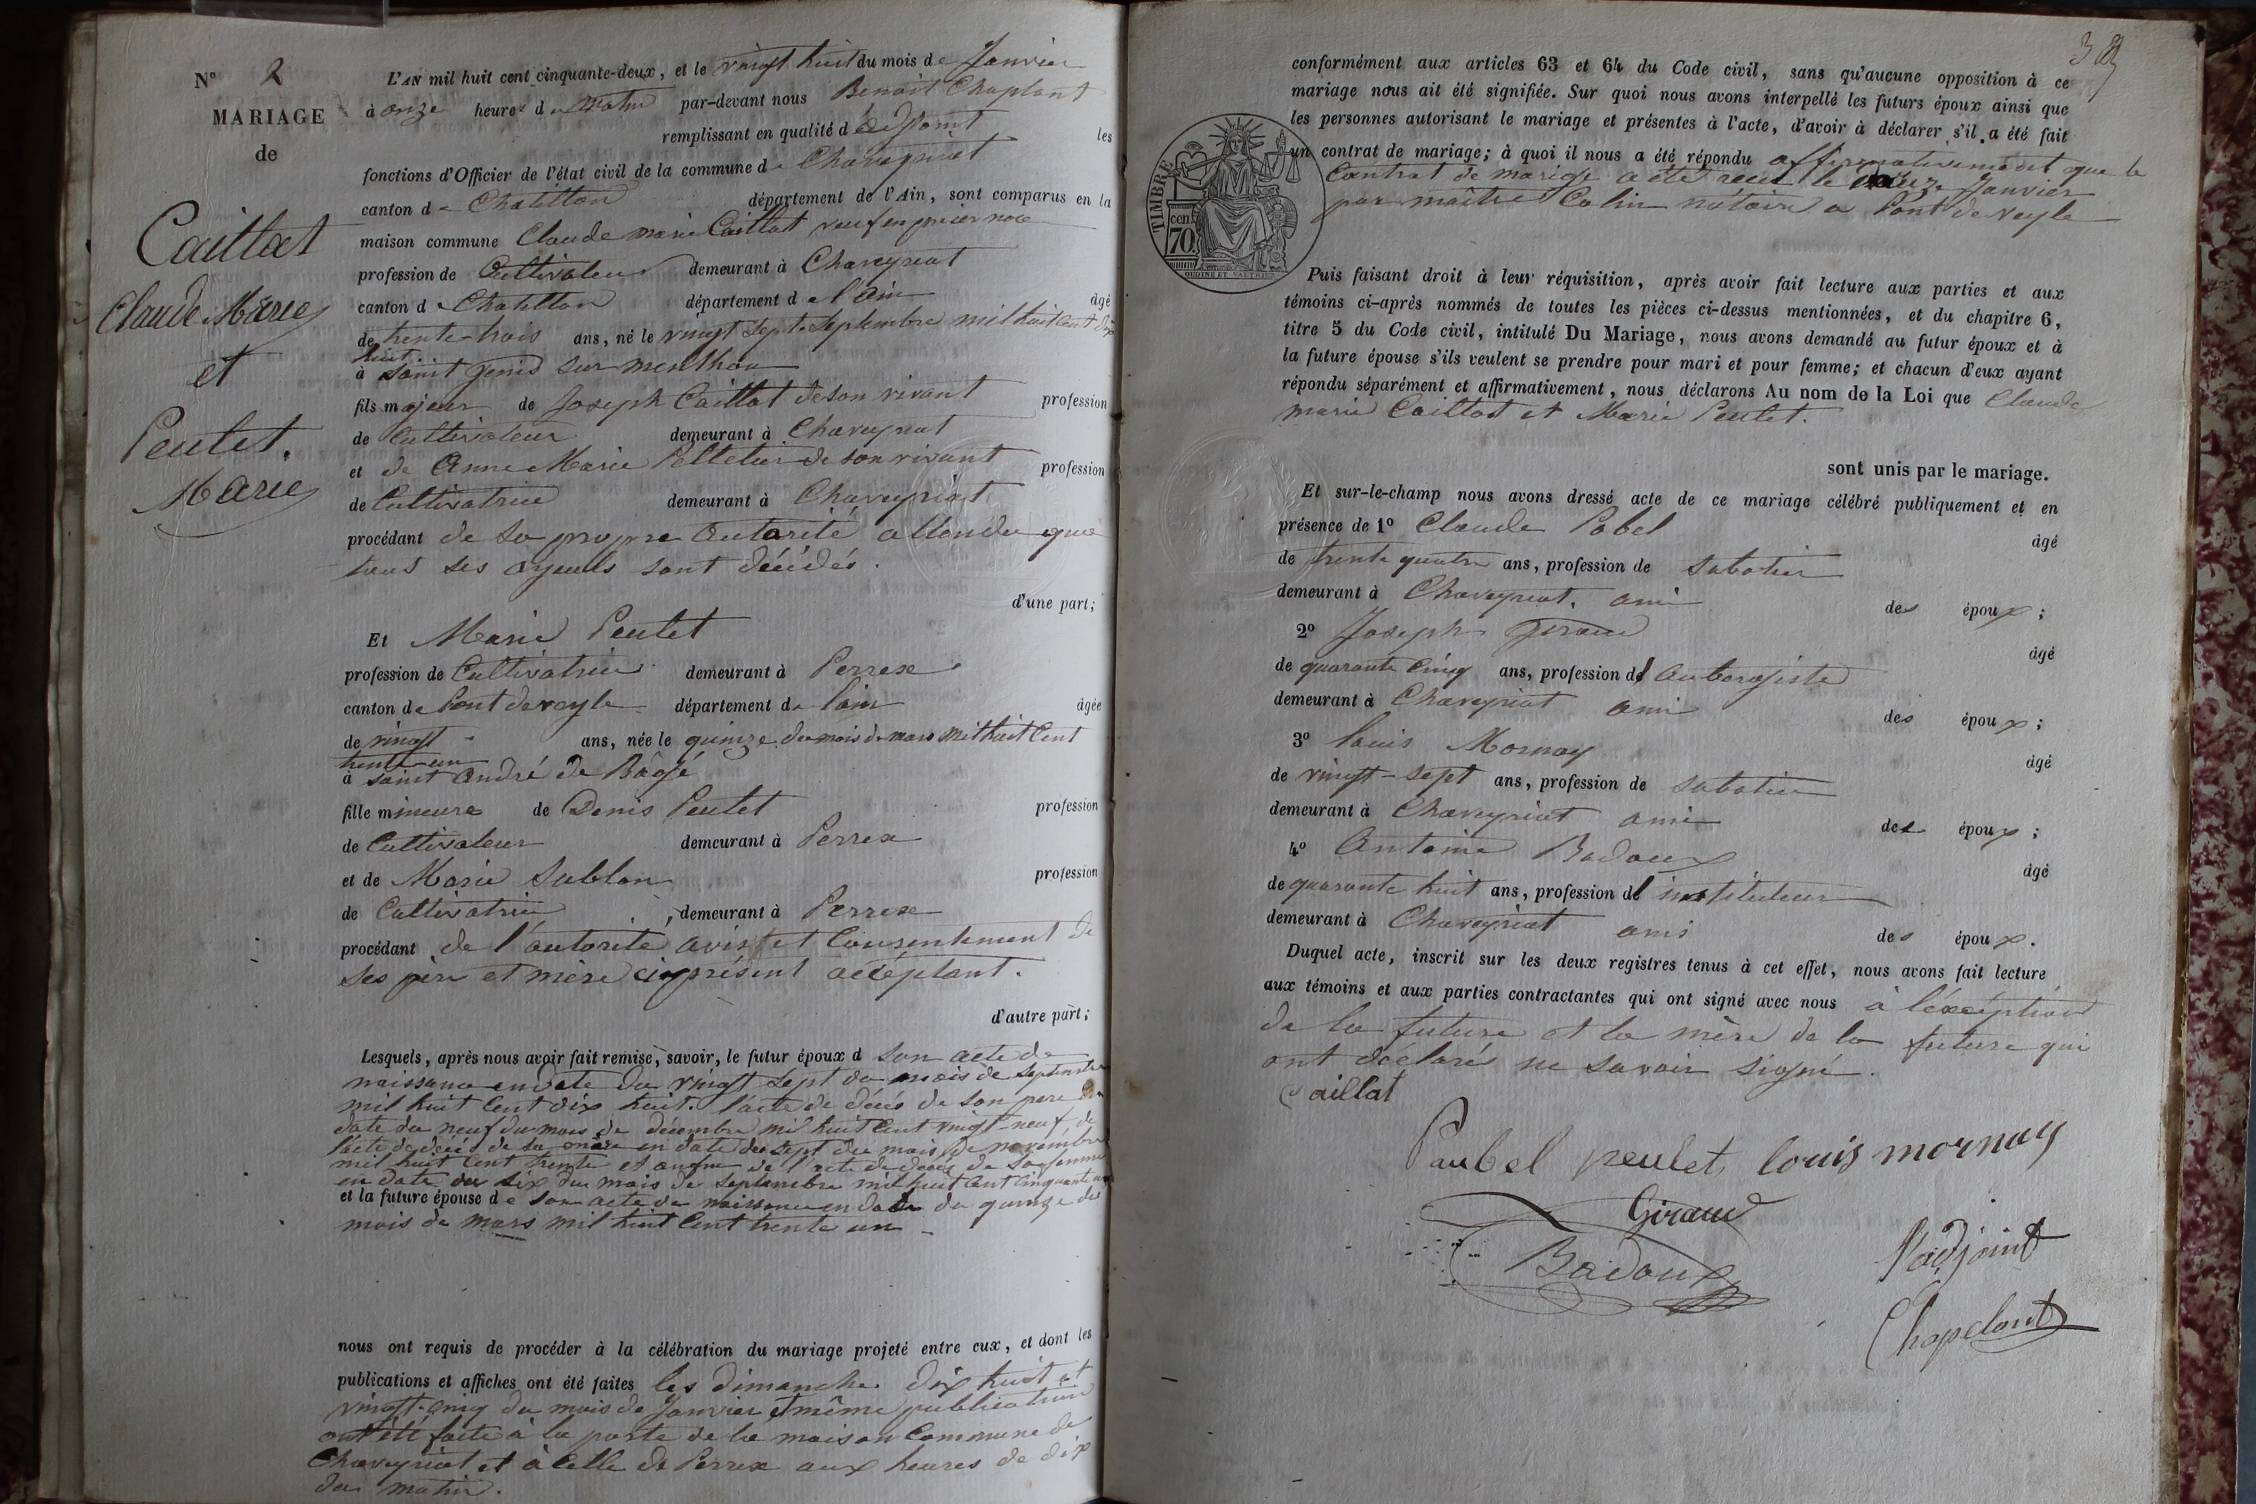 N° 2
MARIAGE
de
Caillat
Claude Marie
et
Peulet.
Marie
L'AN mil huit cent cinquante-deux, et le vingt huit du mois de Janvier
à onze heures du matin par-devant nous Benoit Chaplant
remplissant en qualité d'adjoint les
fonctions d'Officier de l'état civil de la commune de Chaveyriat
canton de Chatillon département de l'Ain, sont comparus en la
maison commune Claude marie Caillat veuf en
profession de Cultivateur demeurant à Chaveyriat
canton de Chatillon département de l'ain âgé
de trente-trois ans, né le vingt sept Septembre mil huit cent dix
huit
à saint genis sur menthon
fils majeur de Joseph Caillat de son vivant profession
de Cultivateur demeurant à Chaveyriat
et de Anne Marie Pelletier de son vivant profession
de Cultivatrice demeurant à Chaveyriat
procédant de sa propre autorité attendu que
tous ses ayeuls sont décédés.
d'une part;
Et Marie Peulet
profession de Cultivatrice demeurant à Perrex
canton de Pont de veyle département de lain âgée
de vingt ans, née le quinze du mois de mars mil huit Cent
trente-un
à saint André de Bâgé
fille mineure de Denis Peulet profession
de Cultivateur demeurant à Perrex
et de Marie Sublon profession
de Cultivatrice demeurant à Perrex
procédant de l'autorité avis et Consentement de
ses père et mère ci présent accéptant.
d'autre part;
Lesquels, après nous avoir fait remise, savoir, le futur époux d son acte de
naissance en date du vingt sept du mois de septembre
mil huit Cent dix huit. l'acte de décés de son pere en
date du neuf du mois de décembre mil huit Cent vingt-neuf de
l'acte de décés de sa mère en date du sept du mois de novembre
mil huit Cent trente et enfin de l'acte de décés de sa femme
en date du six du mois de septembre mil huit Cent Cinquante
et la future épouse de son acte de naissance en date du quinze du
mois de mars mil huit Cent trente un
nous ont requis de procéder à la célébration du mariage projeté entre eux, et dont les
publications et affiches ont été faites les dimanche dix huit et
vingt-cinq du mois de Janvier et même publication
ont été faite à la porte de la maison Commune de
Chaveyriat et à celle de Perrex aux heures de dix
du matin.
38
conformément aux articles 63 et 64 du Code civil, sans qu'aucune opposition à ce
mariage nous ait été signifiée. Sur quoi nous avons interpellé les futurs époux ainsi que
les personnes autorisant le mariage et présentes à l'acte, d'avoir à déclarer s'il a été fait
un contrat de mariage; à quoi il nous a été répondu affirmativement que le
Contrat de mariage a été recu le Janvier
par maître Colin notaire a Pont de veyle
TIMBRE
cen.
70
OUDINE ET VAUTHIER
Puis faisant droit à leur réquisition, après avoir fait lecture aux parties et aux
témoins ci-après nommés de toutes les pièces ci-dessus mentionnées, et du chapitre 6,
titre 5 du Code civil, intitulé Du Mariage, nous avons demandé au futur époux et à
la future épouse s'ils veulent se prendre pour mari et pour femme; et chacun d'eux ayant
répondu séparément et affirmativement, nous déclarons Au nom de la Loi que Claude
marie Caillat et Marie Peulet.
sont unis par le mariage.
Et sur-le-champ nous avons dressé acte de ce mariage célébré publiquement et en
présence de 1° Claude Pobel âgé
de trente quatre ans, profession de sabotier
demeurant à Chaveyriat. ami des époux;
2° Joseph Giraud âgé
de quarante cinq ans, profession d' aubergiste
demeurant à Chaveyriat ami des époux;
3° louis Mornay âgé
de vingt-sept ans, profession de sabotier
demeurant à Chaveyriat ami des époux;
4° Antoine Badoux âgé
de quarante huit ans, profession d' instituteur
demeurant à Chaveyriat ami des époux.
Duquel acte, inscrit sur les deux registres tenus à cet effet, nous avons fait lecture
aux témoins et aux parties contractantes qui ont signé avec nous à l'éxcéption
de la future et la mère de la future qui
ont déclaré ne savoir signé.
Caillat
Paubel peulet louis mornay
Giraud
Badoux
l'adjoint
Chapelant